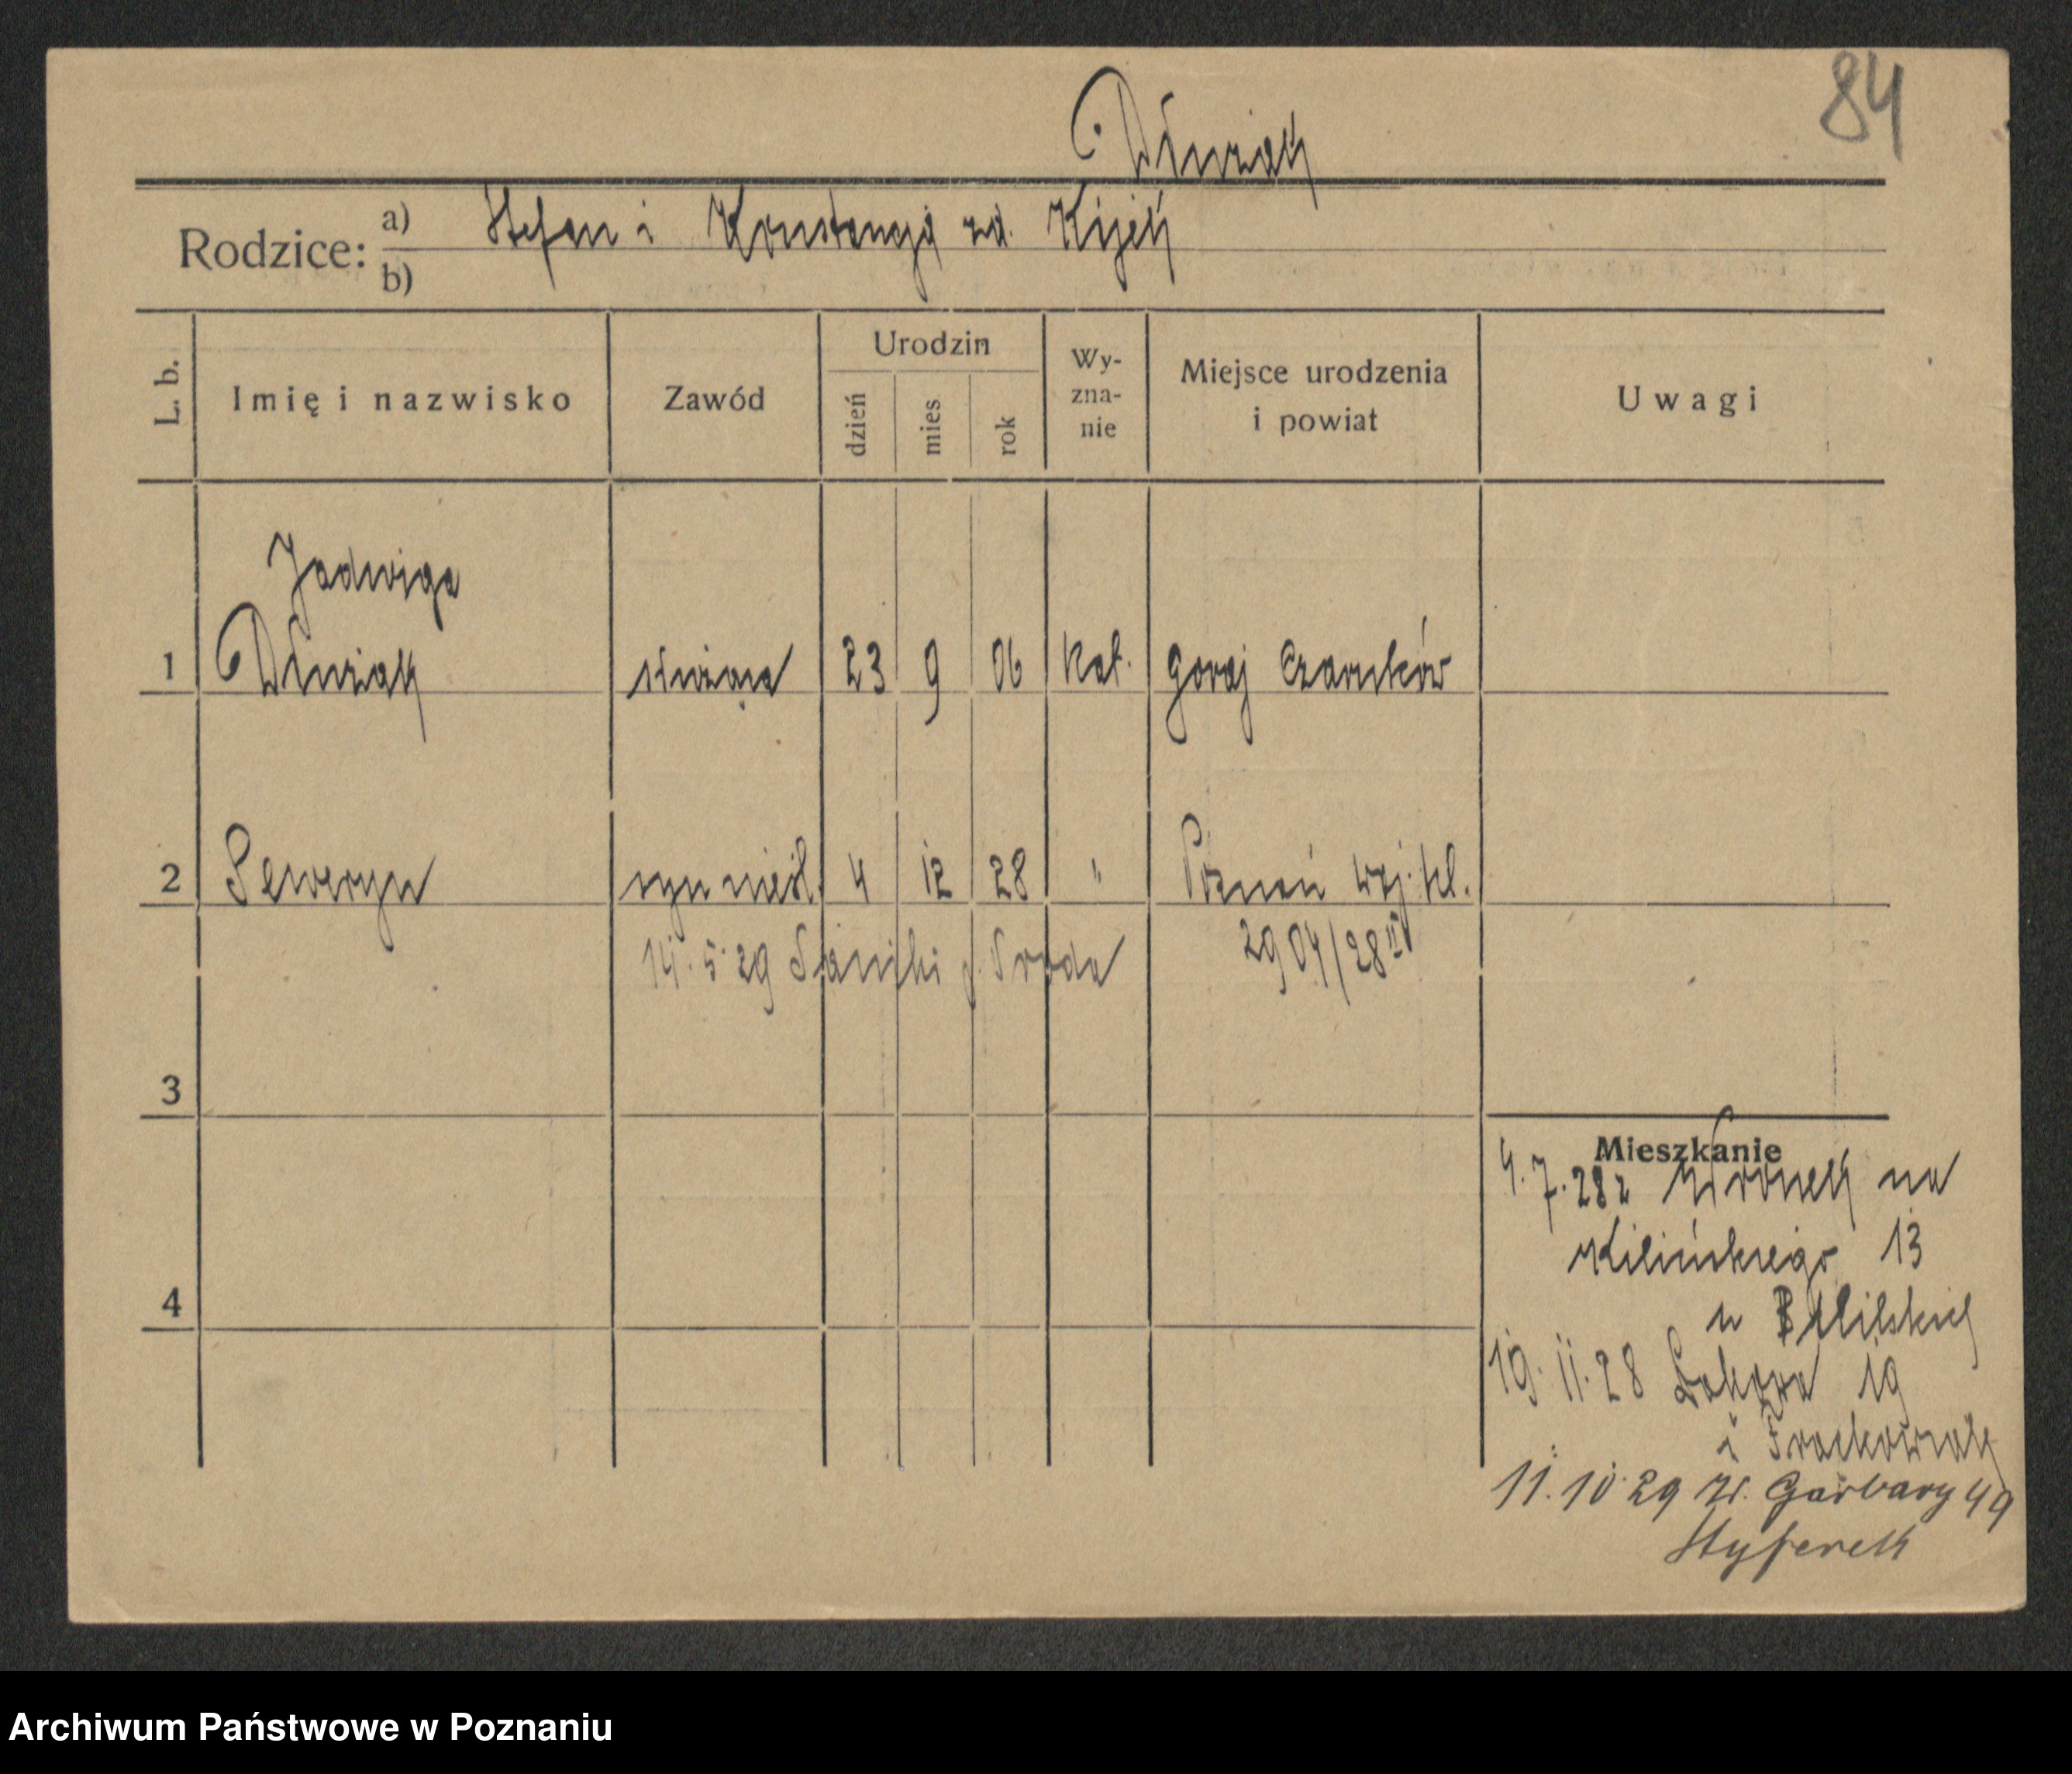 84
Dłużak
Rodzice: a) Stefan i Konstancja zd. Kijek
b)
L. b. Imię i nazwisko Zawód Urodzin dzień mies rok Wy-zna-nie Miejsce urodzenia i powiat Uwagi
Jadwiga
1 Dłużak służąca 23 9 06 kat. Goraj Czarnków
2 Seweryn syn nieśl. 4 12 28 " Poznań woj. kl.
14. 5. 29 p. Środa 2904/28 IV
3
Mieszkanie
4. 7. 28 z Wronek na
Kilińskiego 13
4
u
19. 11. 28 Łąkowa 19
i Frackowiak
11. 10. 29 W. Garbary 49
Archiwum Państwowe w Poznaniu